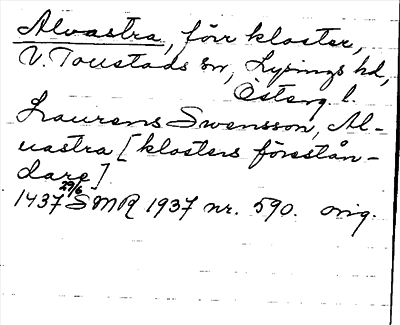 Alvastra, förr kloster,
V. Toustads sn, Lysings hd,
Österg. l.
Laurens Swensson, Al-
uastra [klosters förestån-
dare]
1437 29/6 SMR 1937 nr. 590. orig.